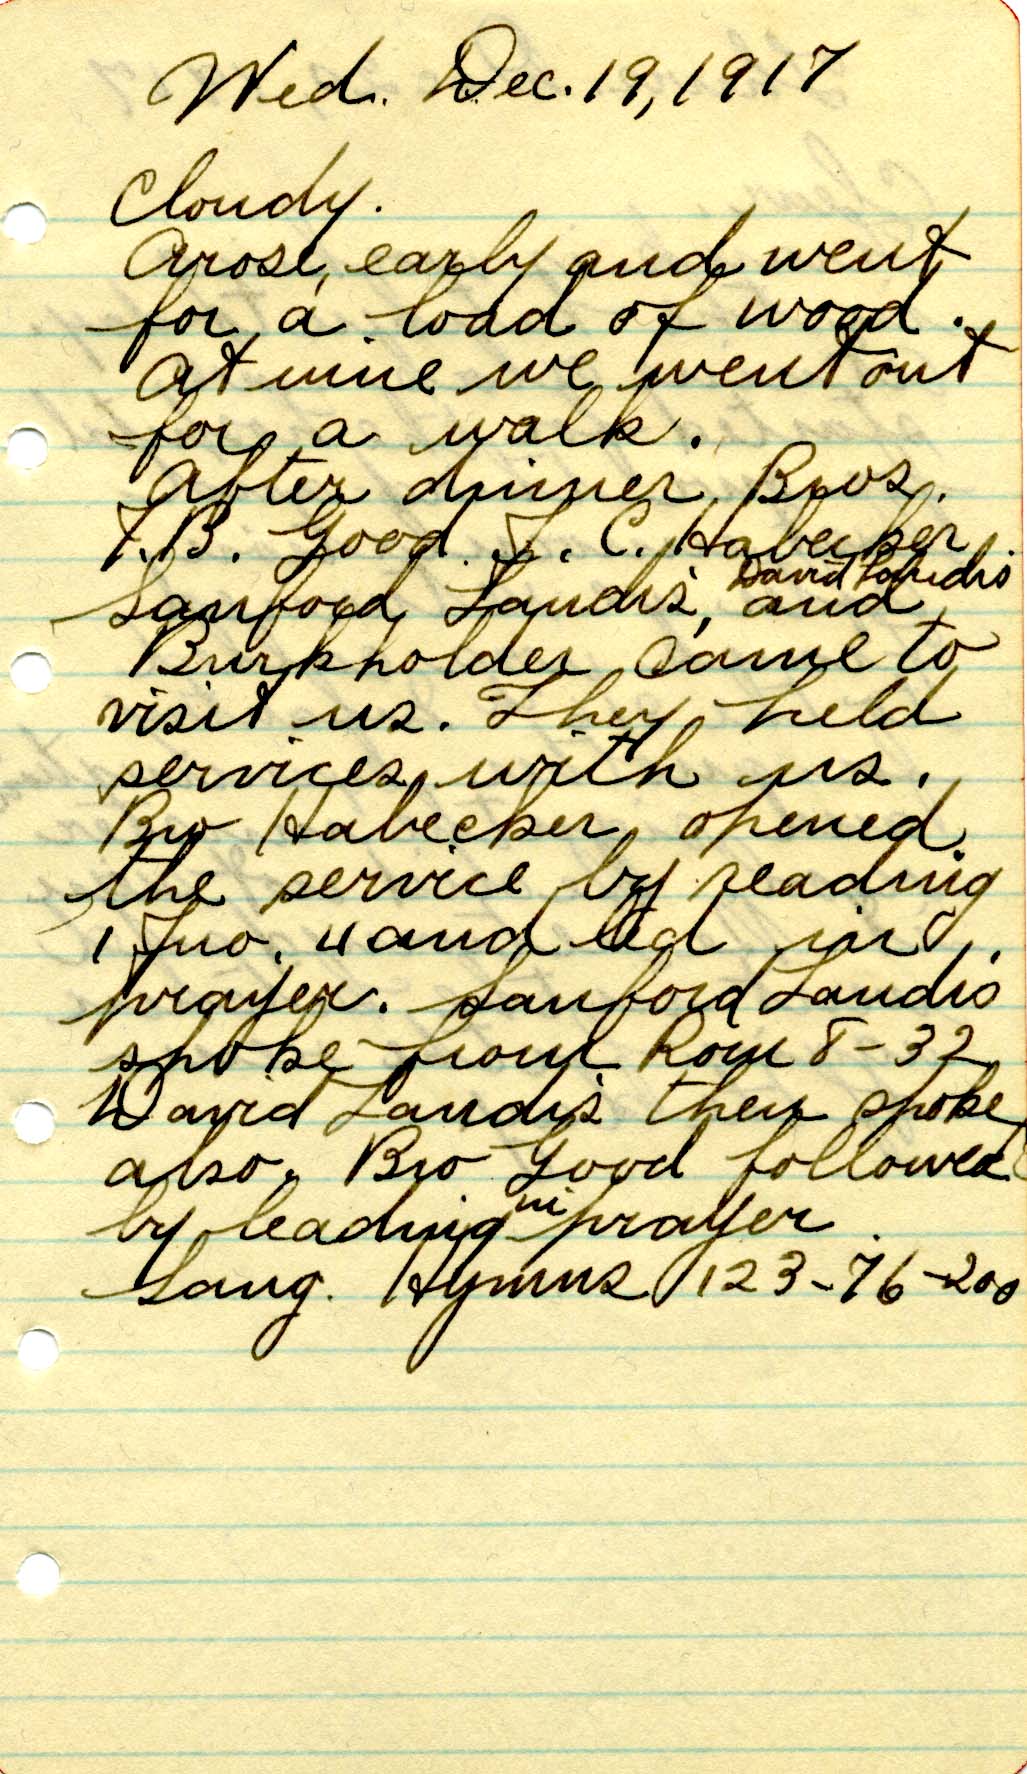 Wed. Dec. 19, 1917
Cloudy.
Arose early and went
for a load of wood.
At nine we went out
for a walk.
After dinner, Bros.
I.B. Good. J. C. Habecker
David Landis
Sanford Landis, and
Burkholder came to
visit us. They held
services with us.
Bro Habecker opened
the service by reading
1 Jno. 4 and led in
prayer. Sanford Landis
spoke from Rom 8-32
David Landis then spoke
also. Bro Good followed
by leading in prayer
Sang. Hymns 123-76-200